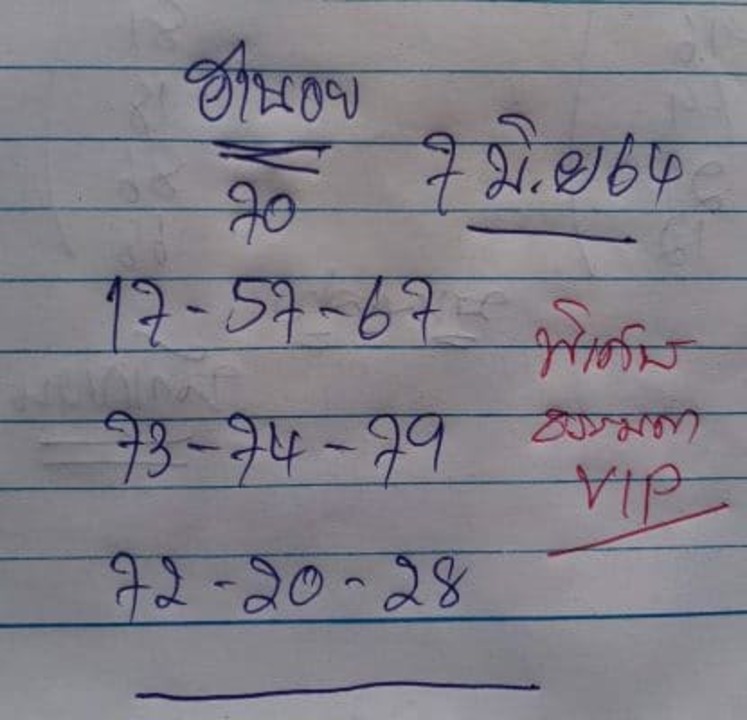 ฮานอย
7 มิ.ย 64
70
17-57-67
73-74-79
72-20-28
พิเศษ
ธรรมดา
VIP